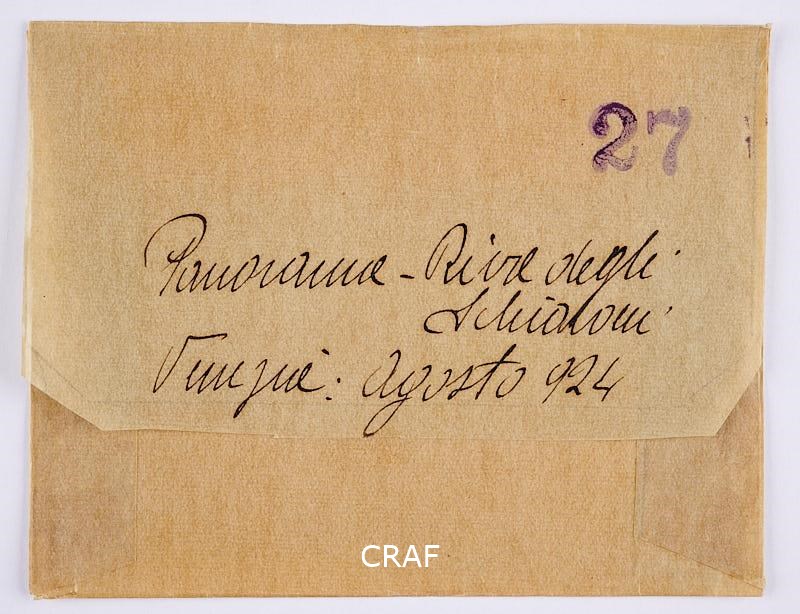 27
Panorama - Riva degli
Schiavoni
Venezia: Agosto 924
CRAF